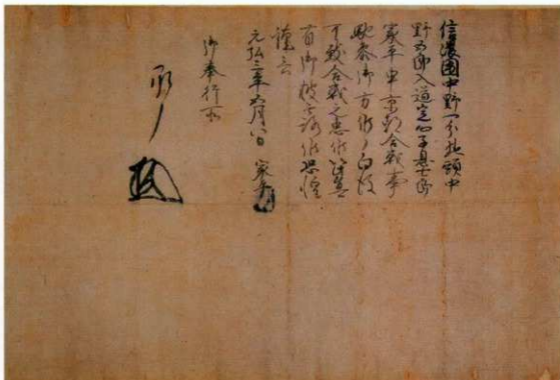 信濃國中野一分地頭中
野五郎入道定心子息七郎
家平申京都合戦事
馳参御方候自後
可致合戦之忠候以此旨
有御披露候恐惶
謹言
元弘三年五月八日 家平
御奉行所
承了